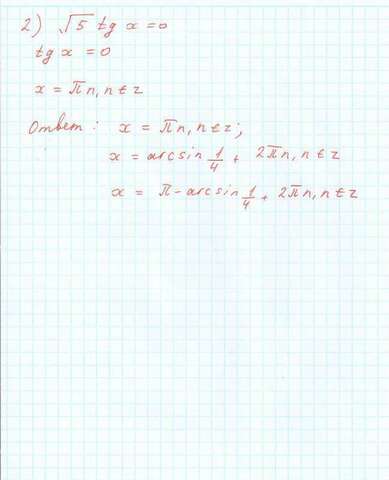 2) √5 tg x = 0
tg x = 0
x = πn, n ∈ z
Ответ: x = πn, n ∈ z;
x = arcsin 1/4 + 2πn, n ∈ z
x = π - arcsin 1/4 + 2πn, n ∈ z